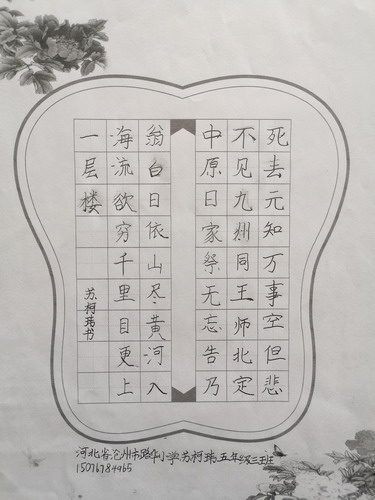 死去元知万事空但悲
不见九州同王师北定
中原日家祭无忘告乃
翁白日依山尽黄河入
海流欲穷千里目更上
一层楼
苏柯玮书
河北省沧州市路华小学苏柯玮五年级三班
15076784965